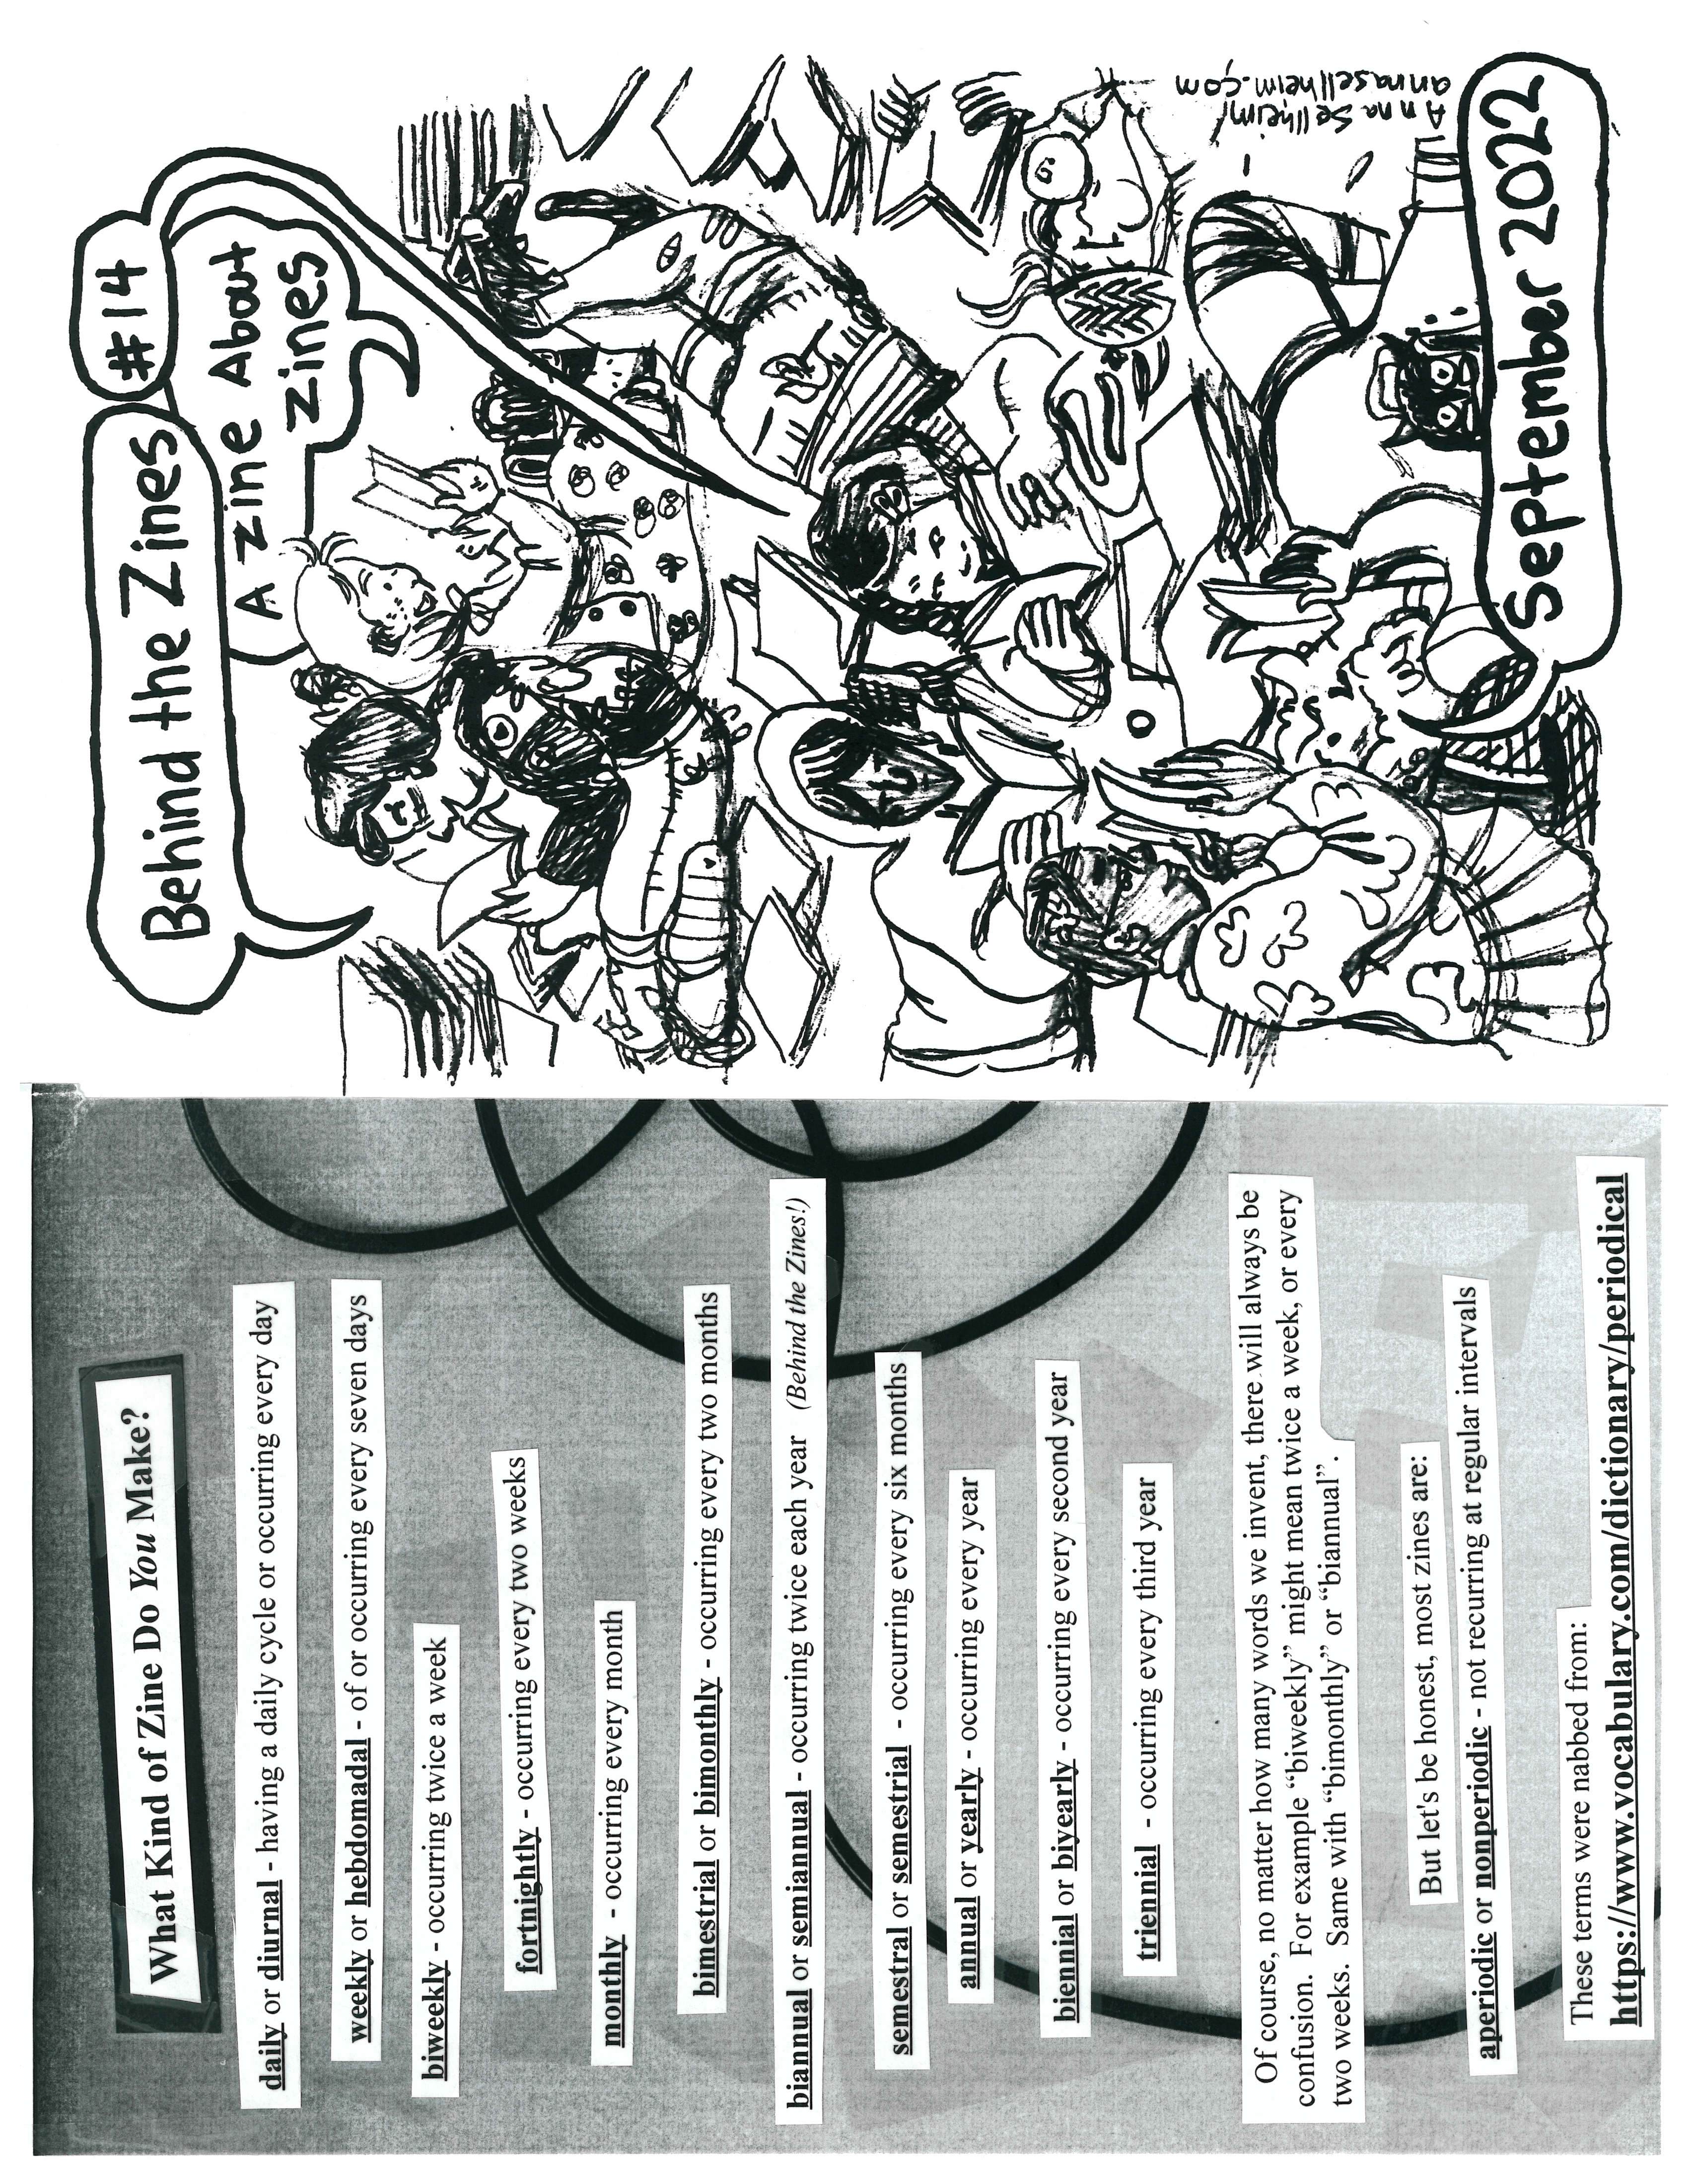 Behind the Zines
#14
A zine About
zines
September 2022
Anna Sellheim
annasellheim.com
What Kind of Zine Do You Make?
daily or diurnal - having a daily cycle or occurring every day
weekly or hebdomadal - of or occurring every seven days
biweekly - occurring twice a week
fortnightly - occurring every two weeks
monthly - occurring every month
bimestrial or bimonthly - occurring every two months
biannual or semiannual - occurring twice each year (Behind the Zines!)
semestral or semestrial - occurring every six months
annual or yearly - occurring every year
biennial or biyearly - occurring every second year
triennial - occurring every third year
Of course, no matter how many words we invent, there will always be
confusion. For example “biweekly” might mean twice a week, or every
two weeks. Same with “bimonthly” or “biannual”.
But let's be honest, most zines are:
aperiodic or nonperiodic - not recurring at regular intervals
These terms were nabbed from:
https://www.vocabulary.com/dictionary/periodical